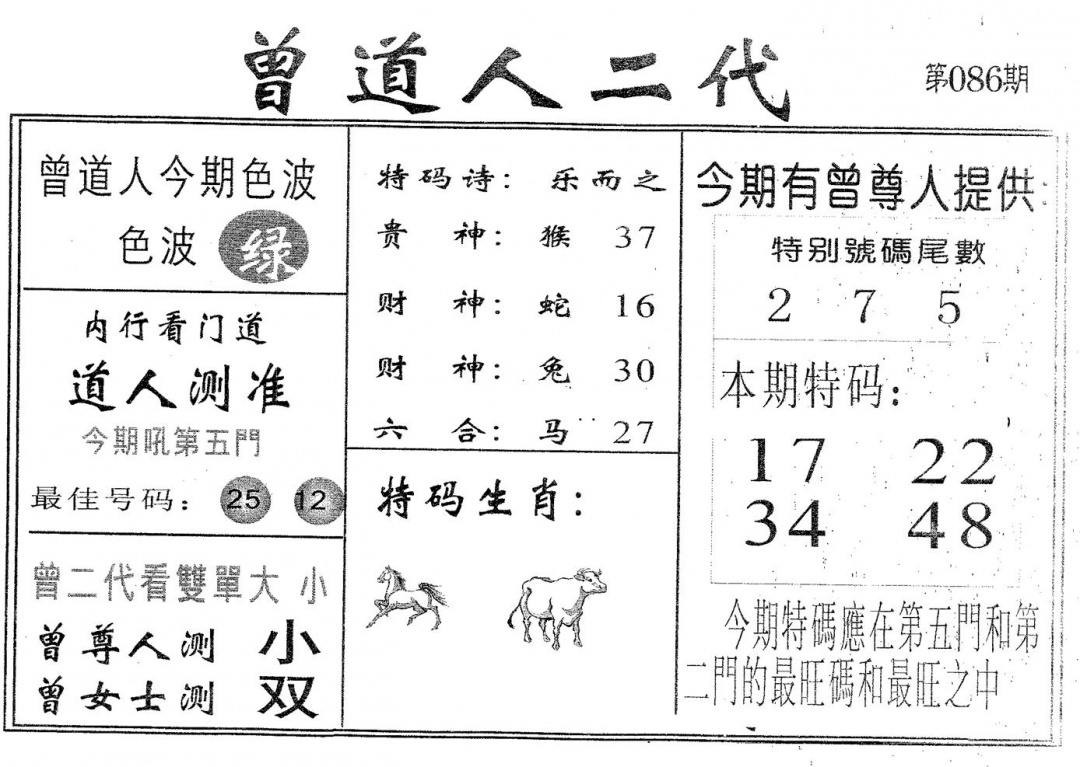 曾道人二代
第086期
曾道人今期色波
色波 绿
内行看门道
道人测准
今期吼第五門
最佳号码： 25 12
曾二代看雙單大 小
曾尊人测 小
曾女士测 双
特码诗： 乐而之
贵 神： 猴 37
财 神： 蛇 16
财 神： 兔 30
六 合： 马 27
特码生肖：
今期有曾尊人提供
特别號碼尾數
2 7 5
本期特码：
17 22
34 48
今期特碼應在第五門和第
二門的最旺碼和最旺之中